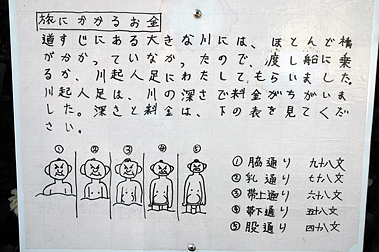 旅にかかるお金
道すじにある大きな川には、ほとんど橋
がかかっていなかったので、渡し船に乗
るか、川起人足にわたしてもらいました。
川起人足は、川の深さで料金がちがいま
した。深さと料金は、下の表を見てくだ
さい。
① ② ③ ④ ⑤
① 脇通り 九十八文
② 乳通り 七十八文
③ 帯上通り 六十八文
④ 帯下通り 五十八文
⑤ 股通り 四十八文